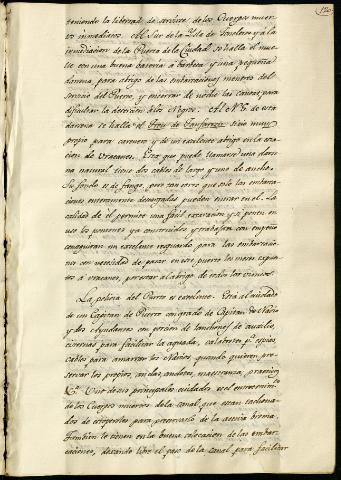 120
teniendo la libertad de servirse de los Cuerpos muer-
tos inmediatos. Al Sur de la Ysla de y à la
inmediacion de la Puerta de la Ciudad se halla el mue-
lle con una buena bateria à barbeta y una pequeña
darsena, para abrigo de las embarcaciones menores del
servicio del Puerto, y encerrar de noche las Canoas para
dificultar la desercion de los Negros. Al NE. de esta
darsena se halla el Trou de Fanfarron sitio muy
propio para carenero y de un excelente abrigo en la oca-
cion de Uracanes. Esta que puede llamarse una darse-
na natural tiene dos cables de largo y uno de ancho.
Su fondo es de fango, pero tan corto que solo las embarca-
ciones enteramente descargadas pueden entrar en el. La
calidad de el permite una facil excavacion y si ponen en
uso los pontones ya construidos y trabajan con empeño
conseguiran un excelente resguardo para las embarcacio-
nes con necesidad de pasar en este puerto los meses expues-
tos à uracanes, por estar al abrigo de todos los vientos.
La policia del Puerto es excelente. Esta al cuidado
de un Capitan de Puerto con grado de Capitan de Navio
y dos Ayudantes con porcion de lanchones de auxilio,
cisternas para facilitar la aguada, calabrotes para espias,
cables para amarrar los Navios, quando quieren pre-
servar los propios, anclas, anclotes, maestranza, practicos
&a. Uno de sus principales cuidados es el entretenimto
de los Cuerpos muertos de la canal que estan tachona-
dos de estoperoles para preservarlos de la activa broma.
Tambien le tienen en la buena colocacion de las embar-
caciones, dexando libre el paso de la canal para facilitar